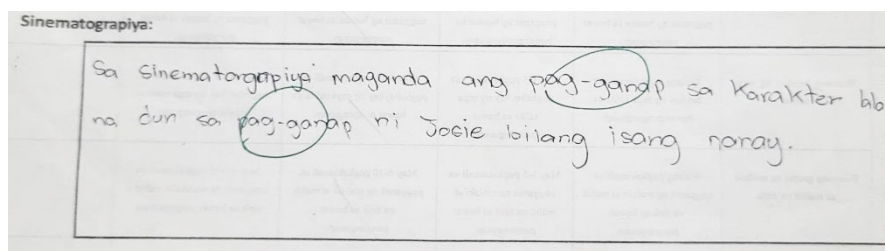 Sinematograpiya:
Sa sinematorgapiya maganda ang pag-ganap sa karakter lalo
na dun sa pag-ganap ni Josie bilang isang nanay.